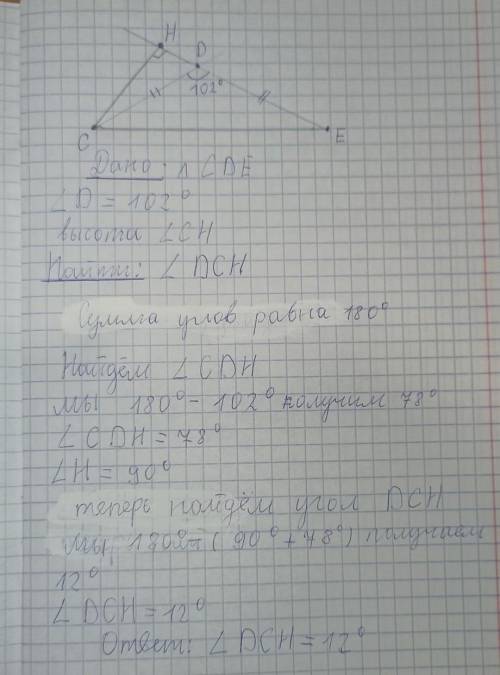 H
D
102°
C
E
Дано: △ CDE
∠D = 102°
высота ∠CH
Найти: ∠ DCH
Сумма углов равна 180°
Найдём ∠CDH
мы 180° - 102° получим 78°
∠CDH = 78°
∠H = 90°
теперь найдём угол DCH
мы, 180°-(90°+78°) получаем
12°
∠DCH = 12°
Ответ: ∠DCH = 12°